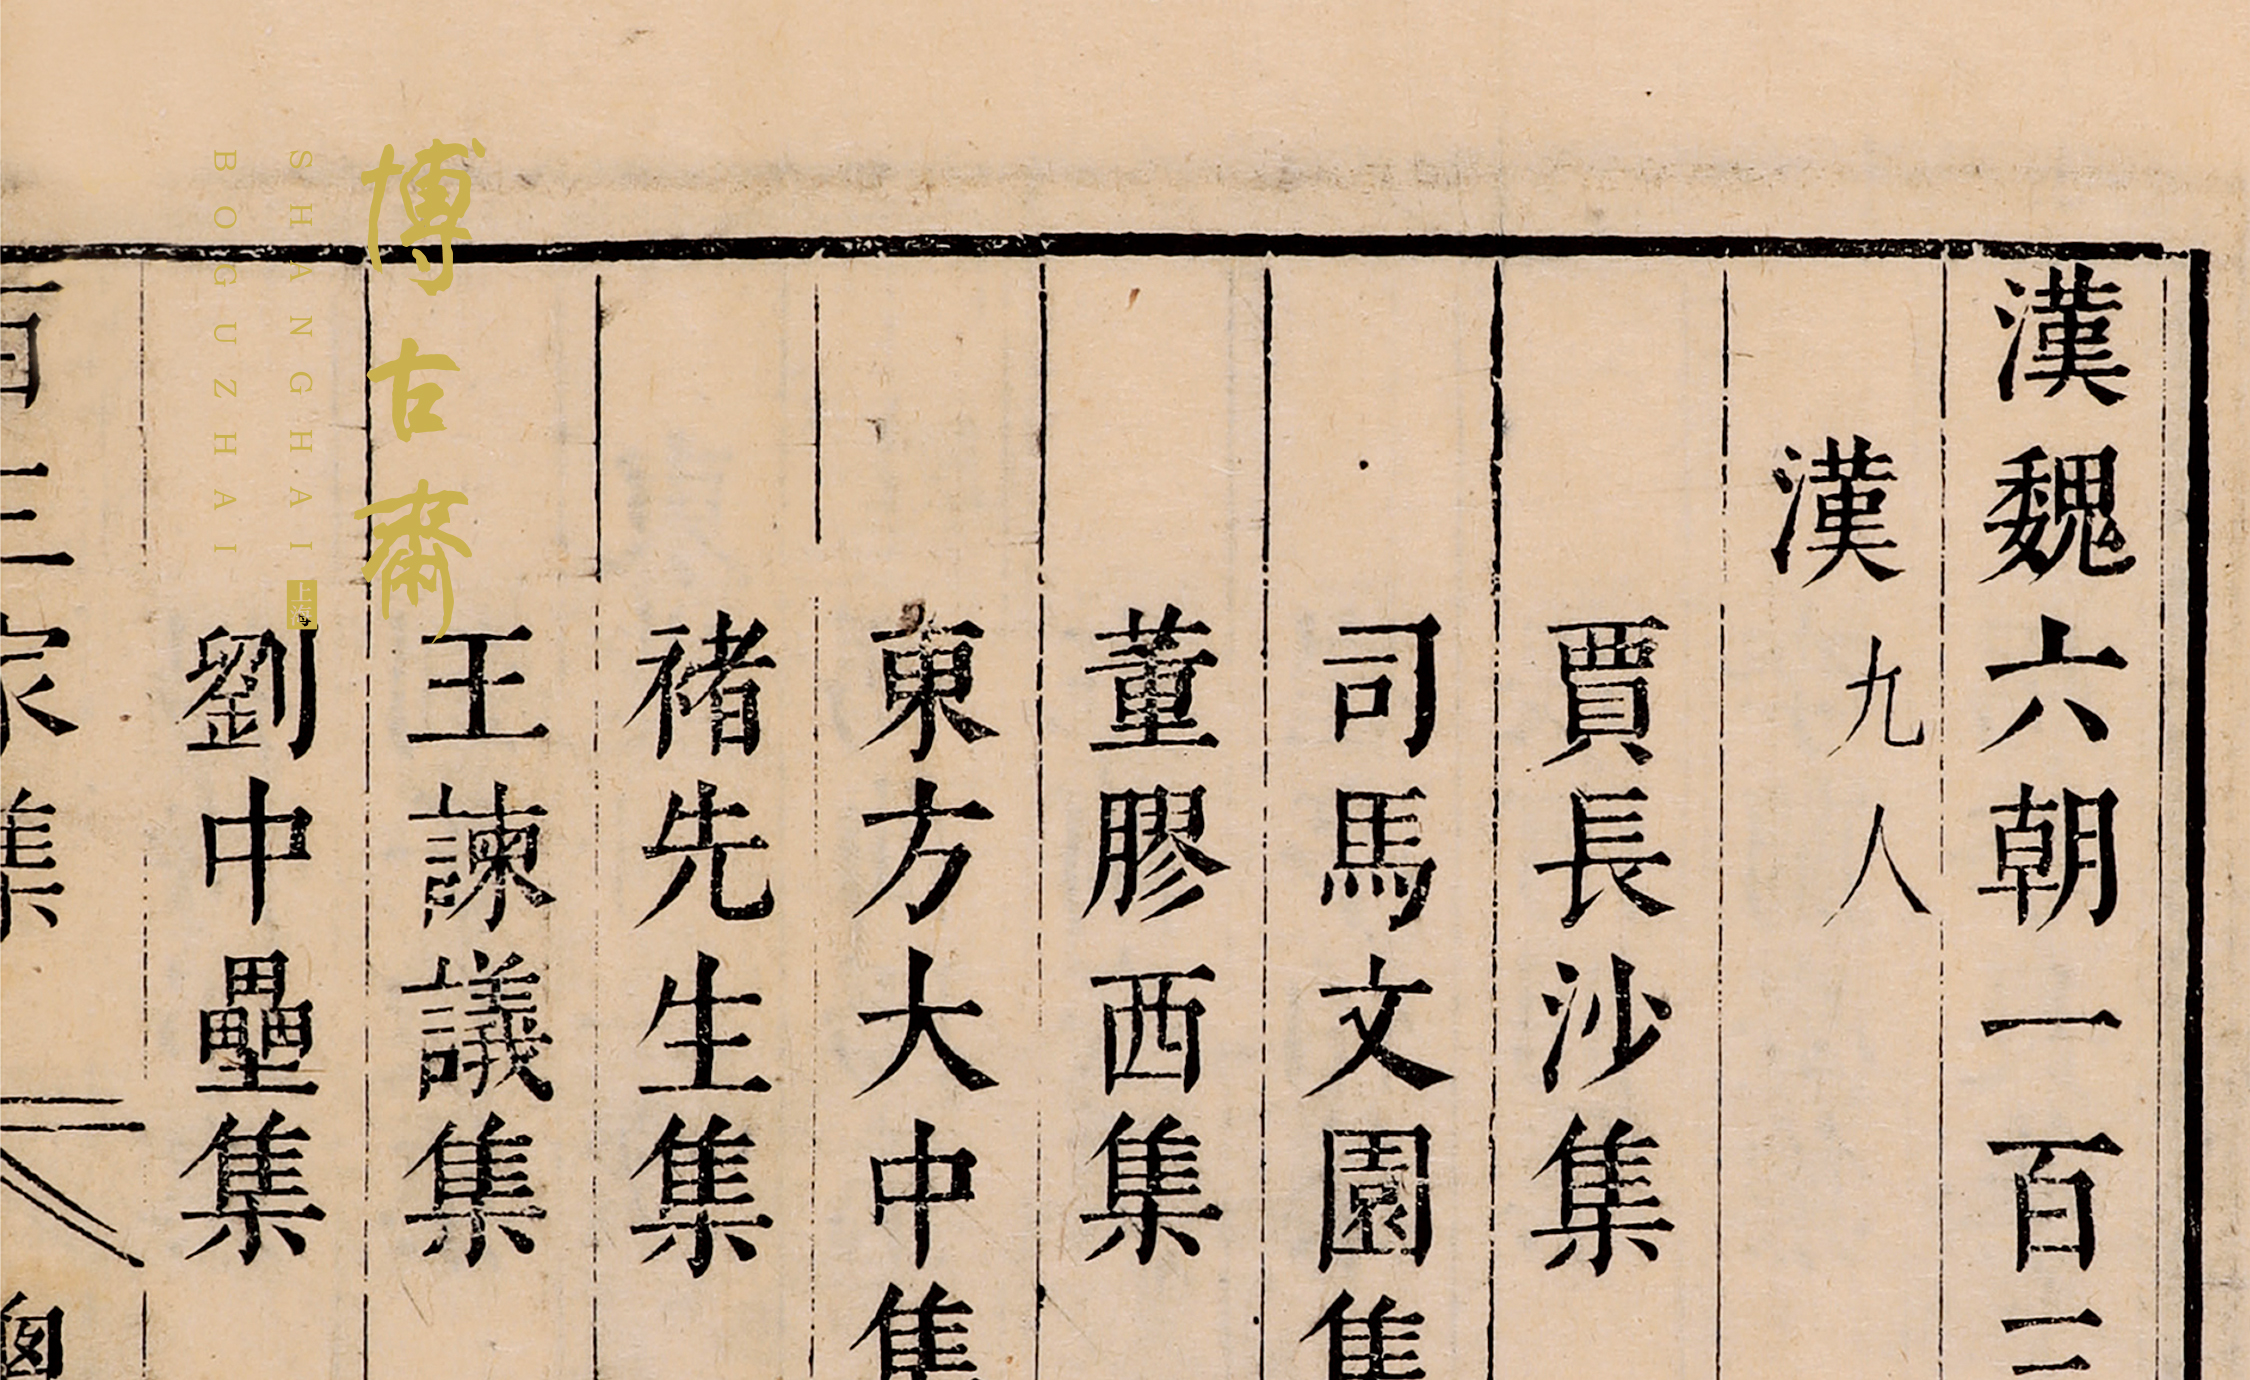 漢魏六朝一百三
漢 九人
賈長沙集
司馬文園集
董膠西集
東方大中集
褚先生集
王諫議集
劉中壘集
百三家集
博古齋
SHANGHAI
上海
BOGUZHAI